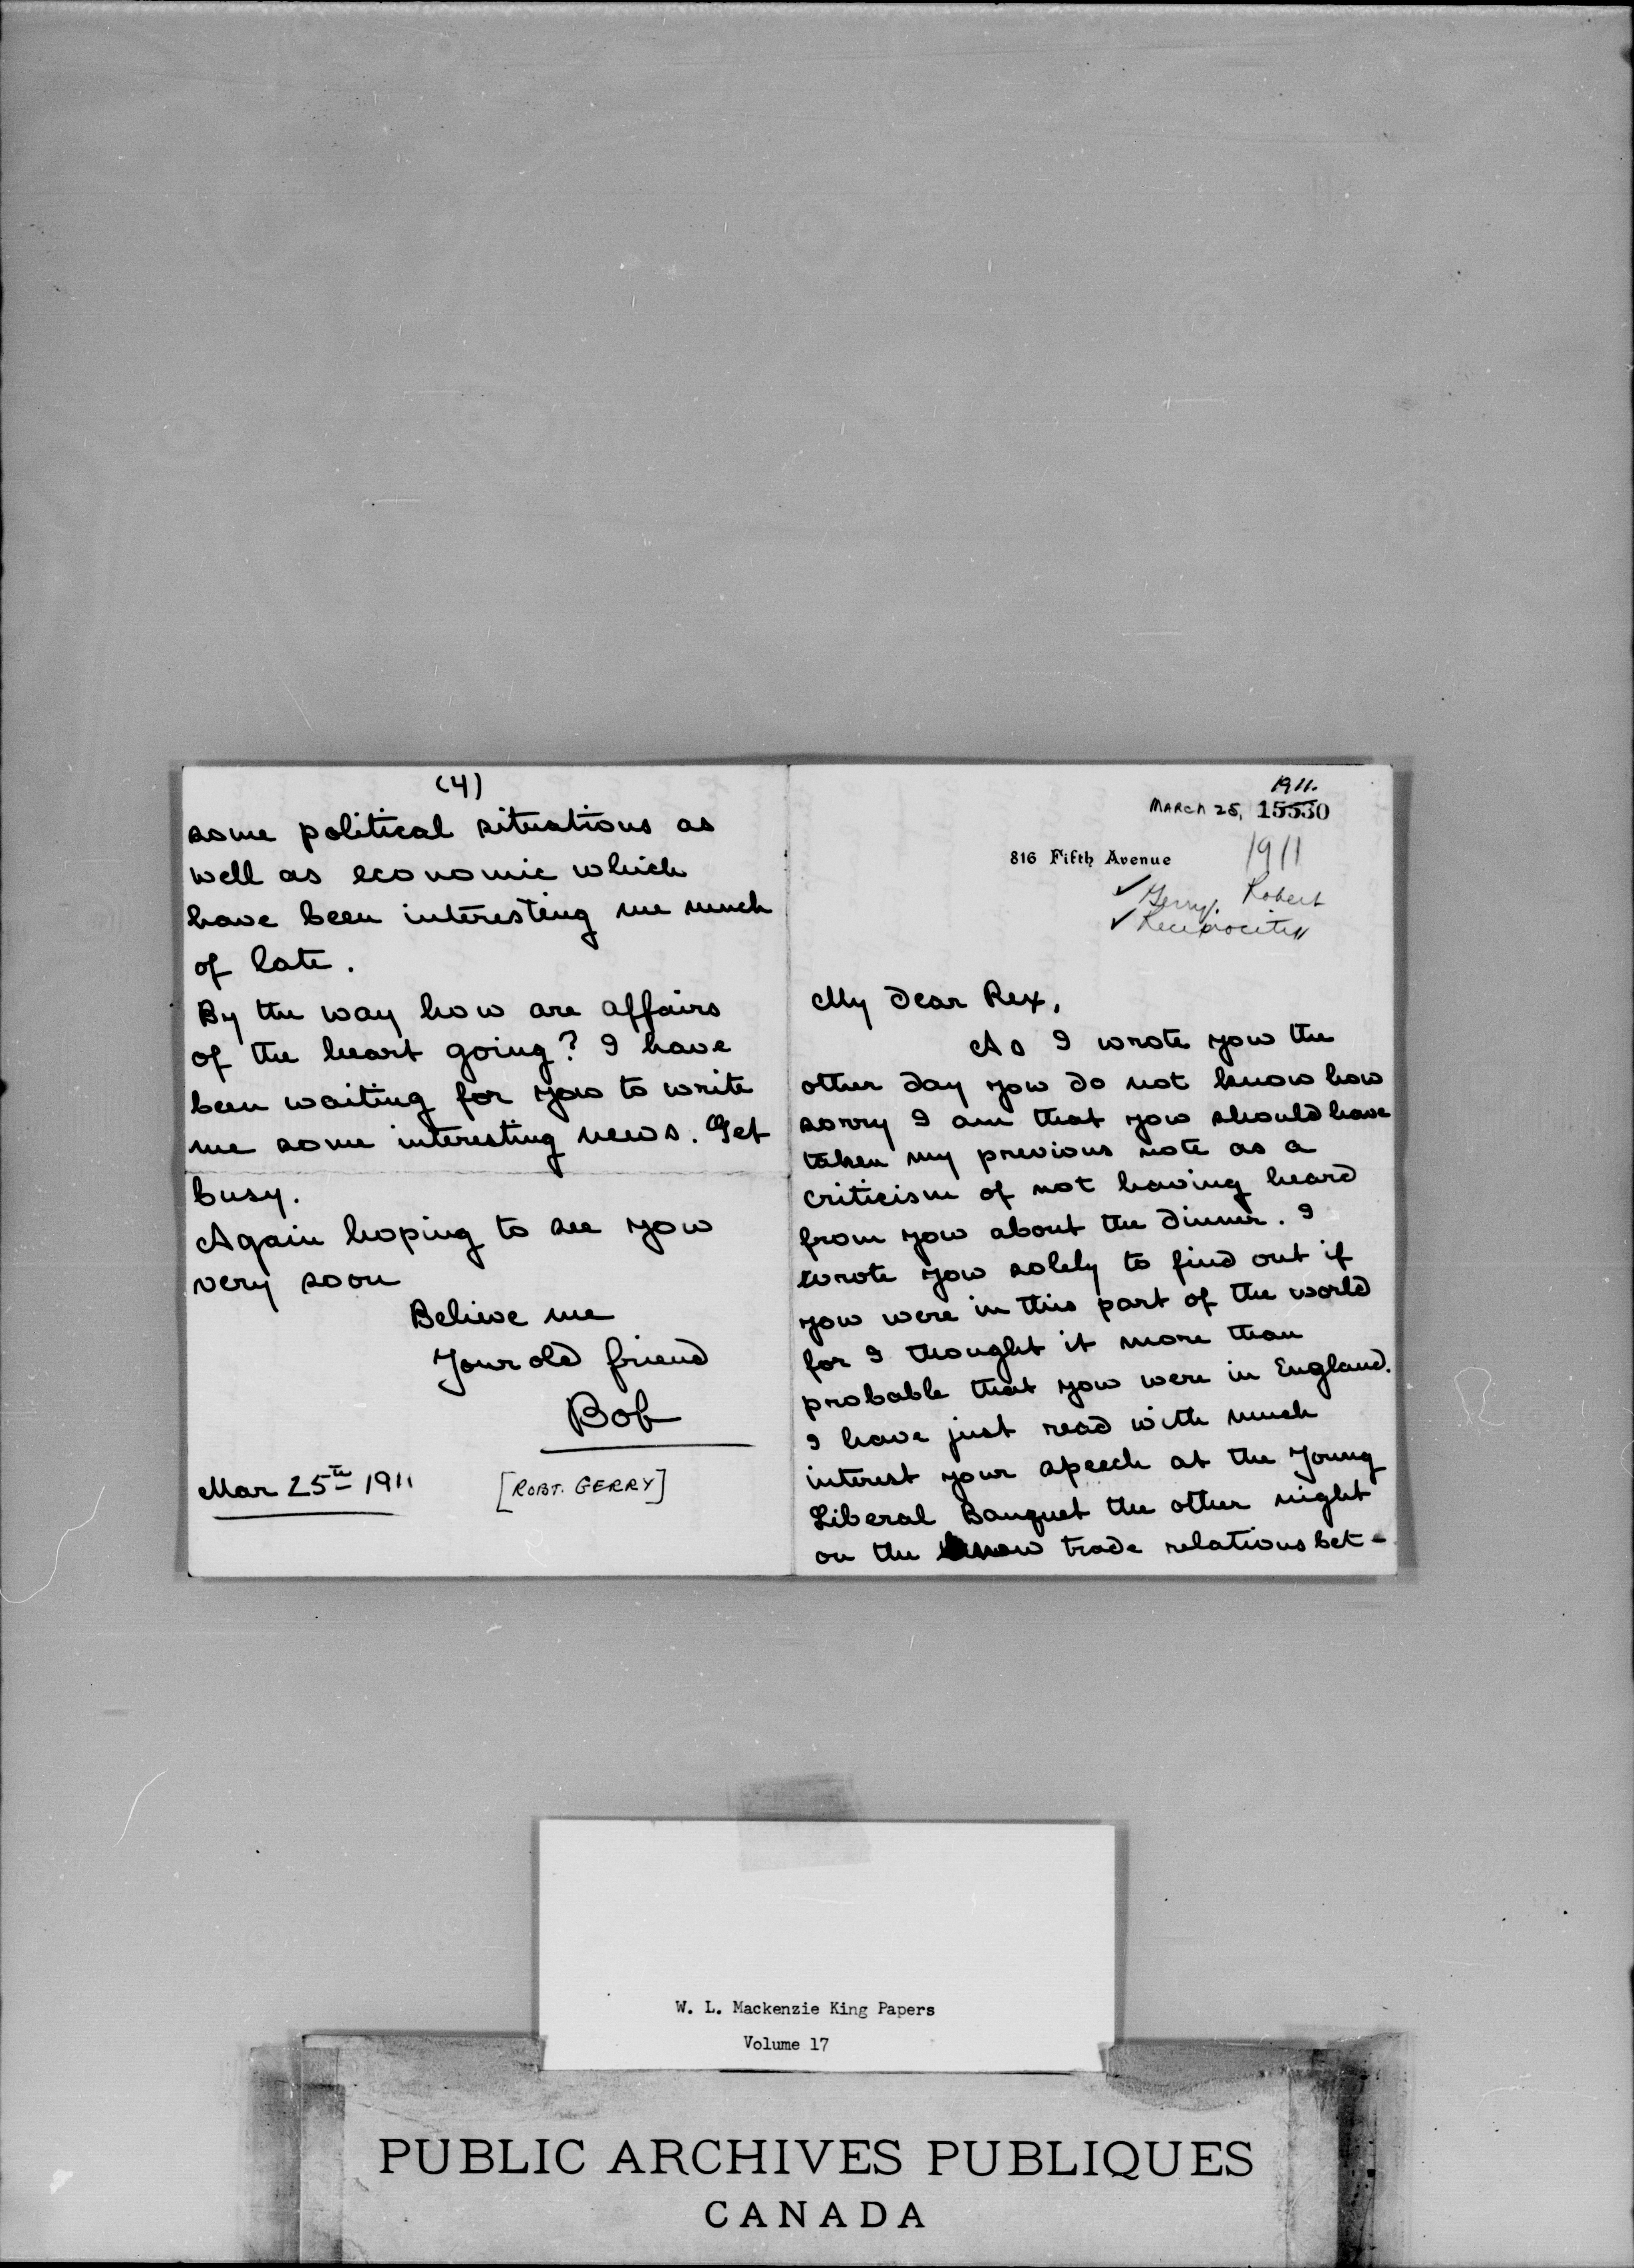 (4)
some political situations as
well as economic which
have been interesting me much
of late.
By the way how are affairs
of the heart going? I have
been waiting for you to write
me some interesting news. Get
busy.
Again hoping to see you
very soon
Believe me
Your old friend
Bob
Mar 25th 1911
[ROBT. GERRY]
1911.
MARCH 25, 15530
816 Fifth Avenue
1911
✓ Gerry, Robert
✓ Reciprocity
My dear Rex,
As I wrote you the
other day you do not know how
sorry I am that you should have
taken my previous note as a
criticism of not having heard
from you about the dinner. I
wrote you solely to find out if
you were in this part of the world
for I thought it more than
probable that you were in England.
I have just read with much
interest your speech at the Young
Liberal Banquet the other night
on the new trade relations bet-
W. L. Mackenzie King Papers
Volume 17
PUBLIC ARCHIVES PUBLIQUES
CANADA